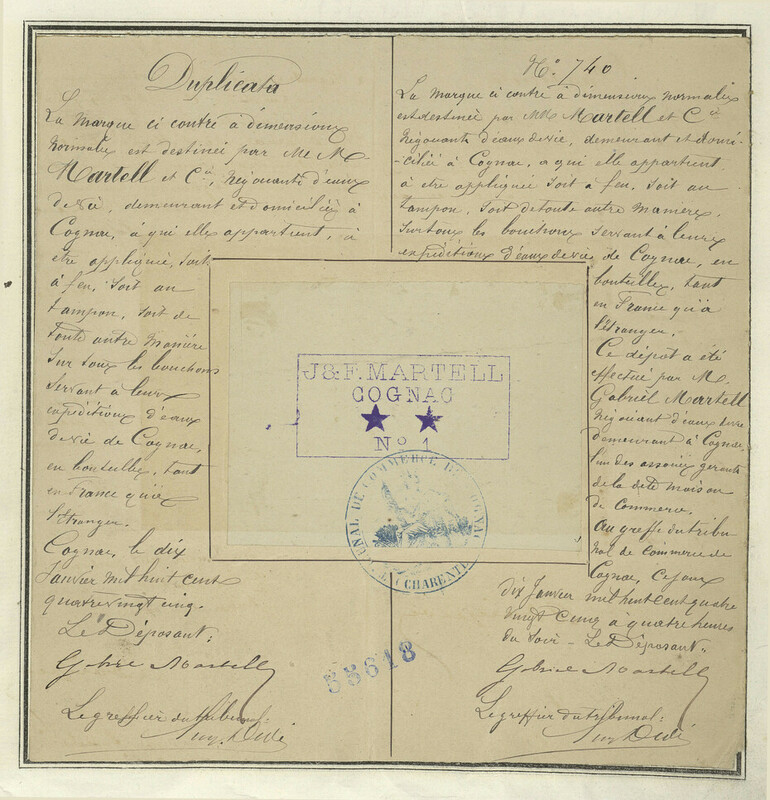 Duplicata
La marque ci contre à dimensions
normales est destinée par MM.
Martell et Cie, Négociants d'eaux
de vie, demeurant et domiciliés à
Cognac, à qui elle appartient, à
être appliquée, soit
à feu, soit au
tampon, soit de
toute autre manière
sur tous les bouchons
servant à leurs
expéditions d'eaux
de vie de Cognac,
en bouteilles, tant
en France qu'à
l'étranger.
Cognac, le dix
Janvier mil huit cent
quatre vingt cinq.
Le Déposant:
Gabriel Martell
Le greffier du tribunal:
No. 740
La marque ci contre à dimensions normales
est destinée par MM. Martell et Cie
Négociants d'eaux de vie, demeurant et domi-
-ciliés à Cognac, à qui elle appartient,
à être appliquée soit à feu, soit au
tampon, soit de toute autre manière,
sur tous les bouchons servant à leurs
expéditions d'eaux de vie de Cognac, en
bouteilles, tant
en France qu'à
l'étranger.
Ce dépôt a été
effectué par M.
Gabriel Martell
Négociant d'eaux de vie
demeurant à Cognac
l'un des associés gérants
de la dite maison
de Commerce.
Au greffe du tribu
nal de Commerce de
Cognac, Ce jour
dix Janvier mil huit cent quatre
vingt cinq à quatre heures
du soir - Le Déposant:
Gabriel Martell
Le greffier du tribunal:
J&F. MARTELL
COGNAC
No 1
TRIBUNAL DE COMMERCE DE COGNAC
CHARENTE